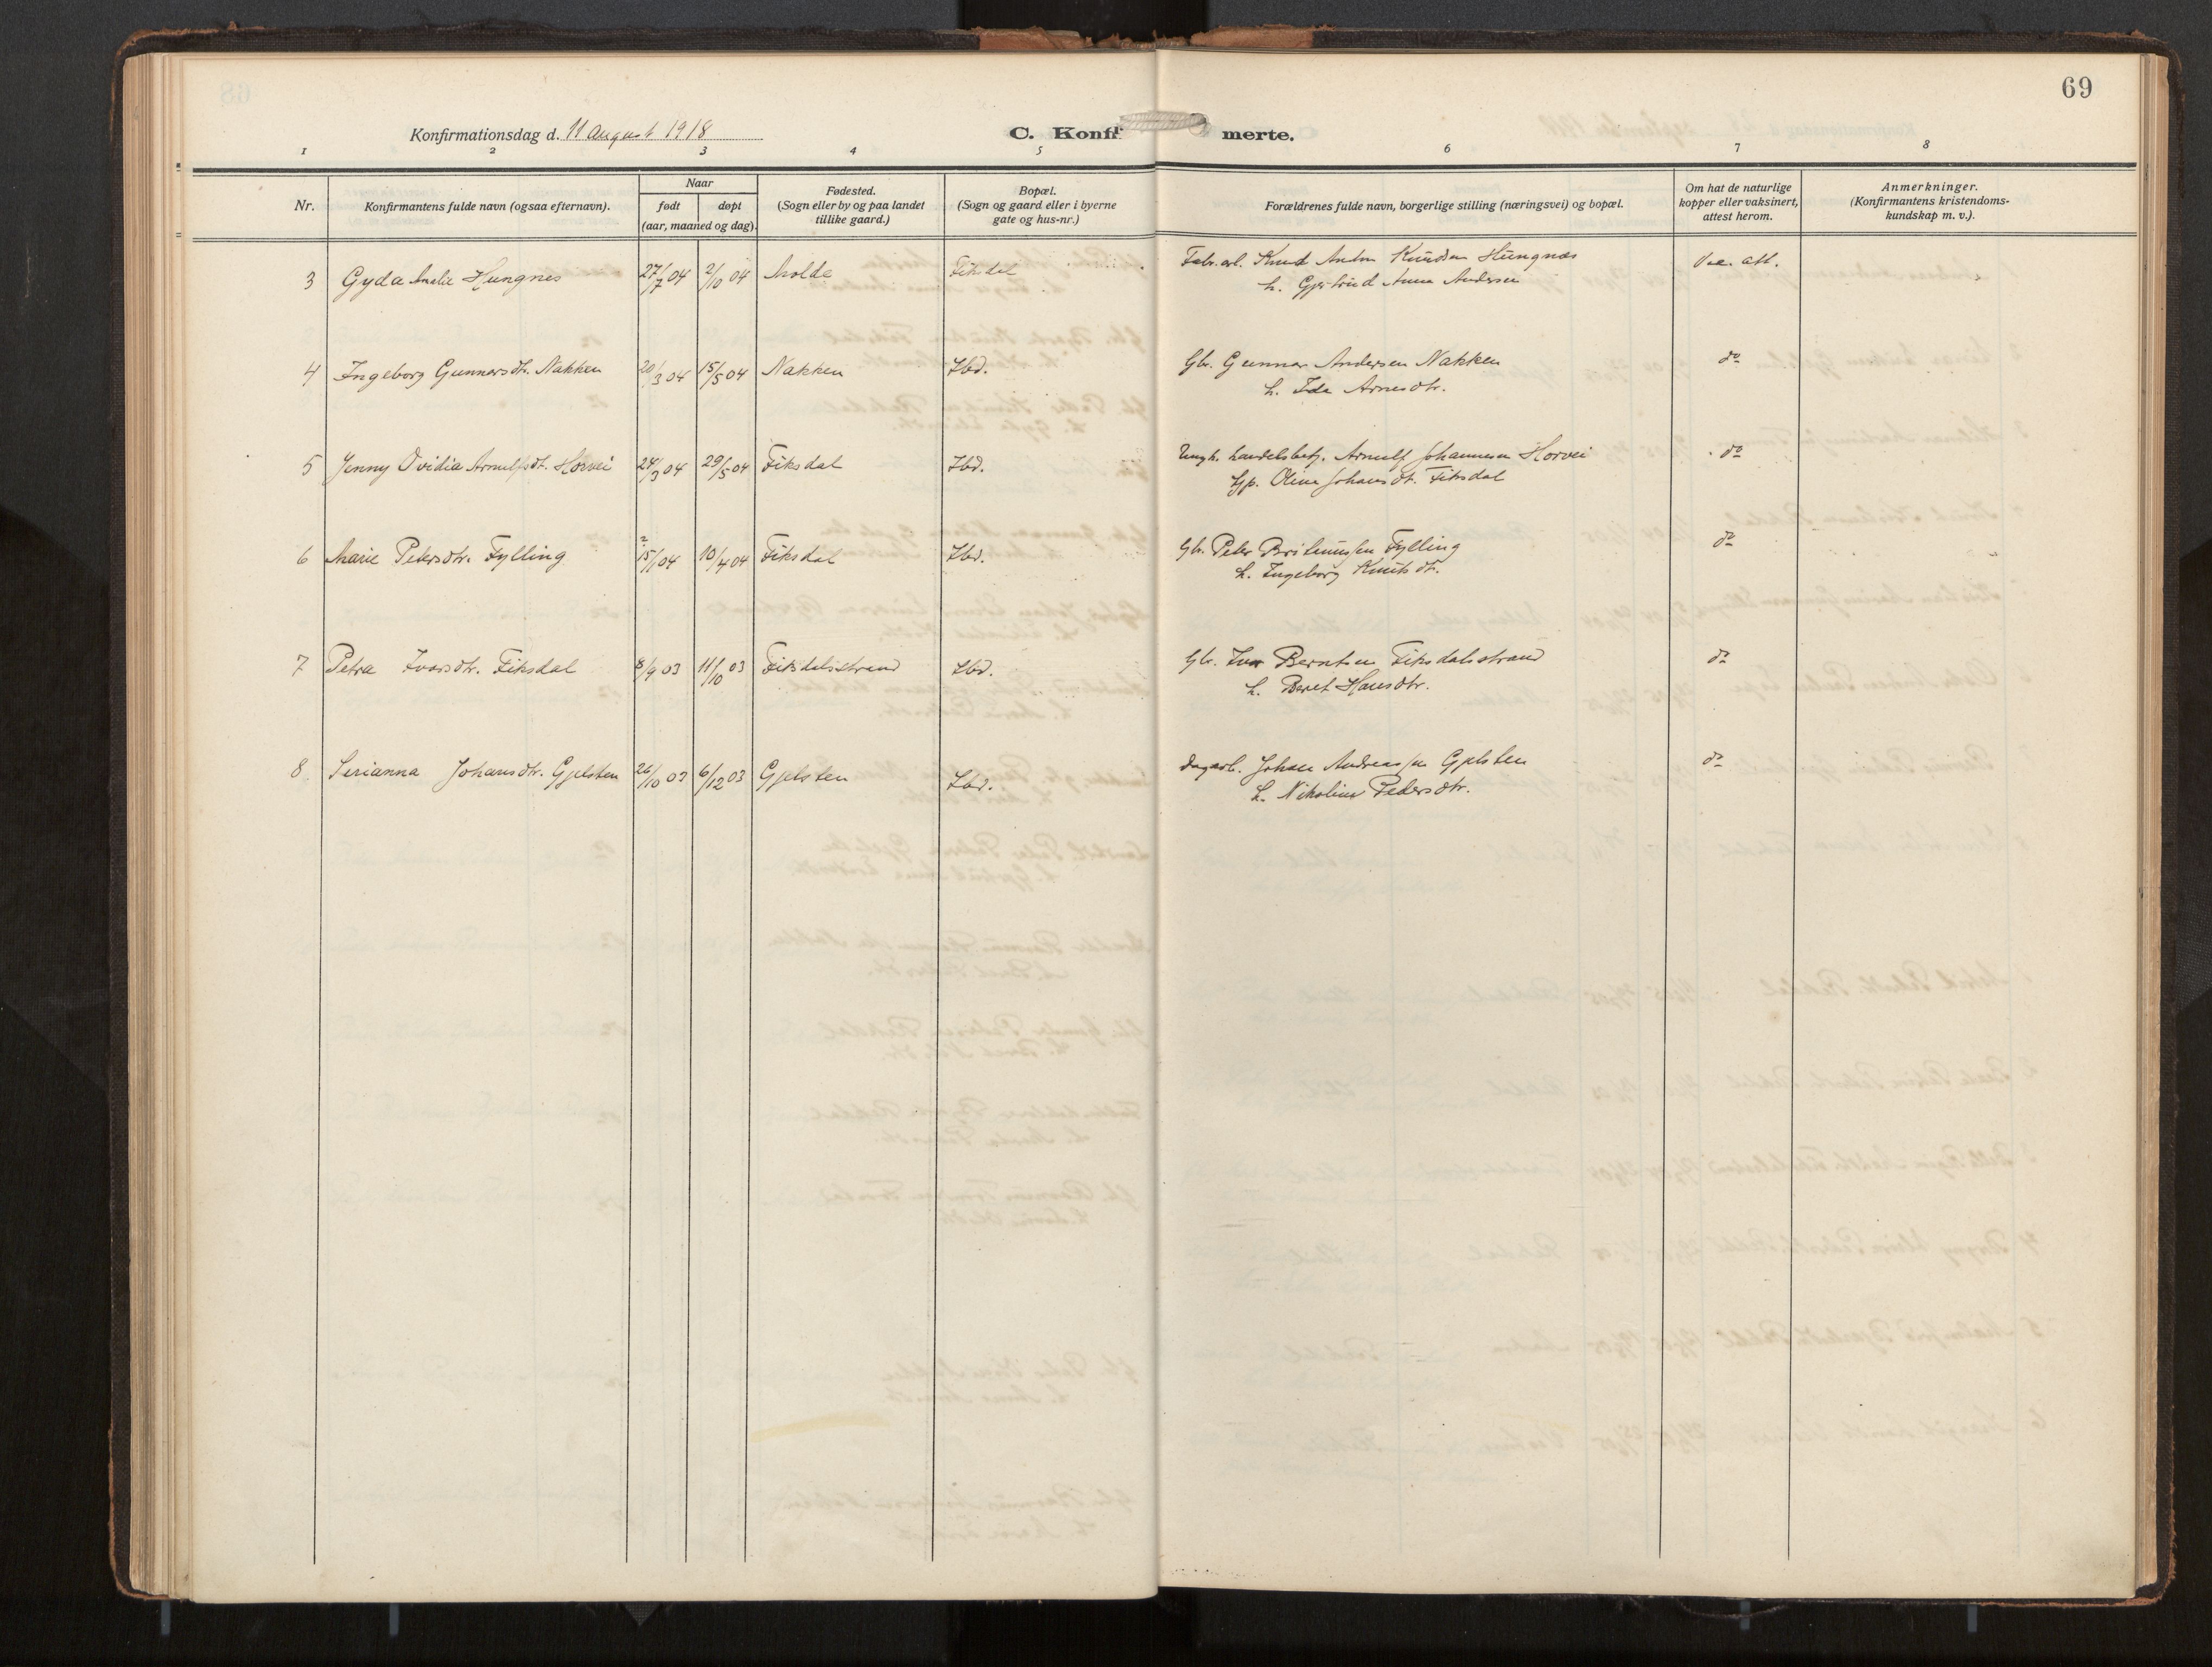 69
Konfirmationsdag d. 11 August 1918
C. Konfirmerte.
1 2 3 4 5 6 7 8
Nr.
Konfirmantens fulde navn (ogsaa efternavn).
Naar
født døpt
(aar, maaned og dag).
Fødested.
(Sogn eller by og paa landet
tillike gaard.)
Bopæl.
(Sogn og gaard eller i byerne
gate og hus-nr.)
Forældrenes fulde navn, borgerlige stilling (næringsvei) og bopæl.
Om hat de naturlige
kopper eller vaksinert,
attest herom.
Anmerkninger.
(Konfirmantens kristendoms-
kundskap m. v.).
3 Gyda Amalie Hungnes 27/7 04 2/10 04 Molde Fiksdal Fabr.arb. Knud Anton Knudsen Hungnes Vac. att.
h. Gjertrud Anna Andersen
4 Ingeborg Gunnarsdtr. Nakken 20/3 04 15/5 04 Nakken Ibd. Gbr. Gunnar Andersen Nakken do
h. Ida Arnesdtr.
5 Jenny Ovidia Arnulfsdt. Horvei 24/3 04 29/5 04 Fiksdal Ibd. Ungk. handelsbetj. Arnulf Johannesen Horvei do
Gp. Oline Johansdt. Fiksdal
6 Marie Petersdtr. Fylling 15/1 04 10/4 04 Fiksdal Ibd. Gbr. Peter Fylling do
h. Ingeborg Knutsdt.
7 Petra Ivarsdtr. Fiksdal 8/9 03 11/10 03 Fiksdalsstrand Ibd. Gbr. Ivar Berntsen Fiksdalsstrand do
h. Beret Hansdtr.
8 Serianna Johansdtr. Gjelsten 26/10 03 6/12 03 Gjelsten Ibd. Dagarb. Johan Andreassen Gjelsten do
h. Nikoline Pedersdtr.